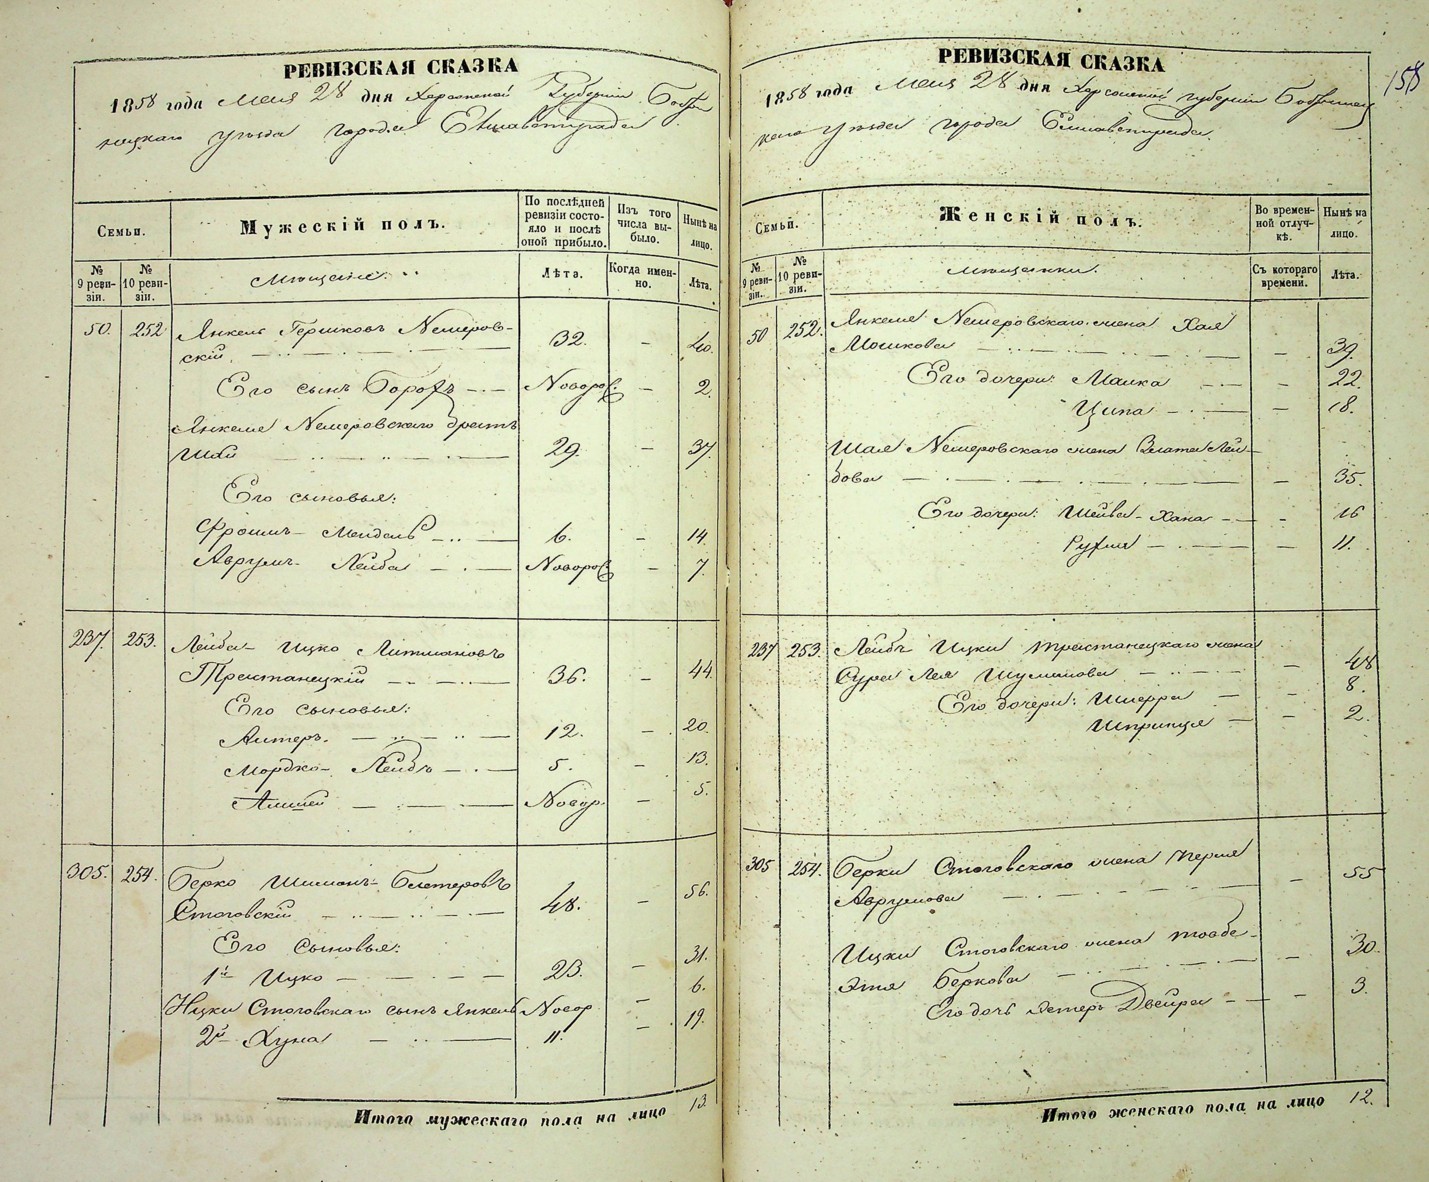 РЕВИЗСКАЯ СКАЗКА
1858 года Мая 28 дня Херсонской Губернии Бобри
нецкаго уѣзда города Елисаветграда
Семьи.
Мужескій полъ.
По послѣдней ревизіи состояло и послѣ оной прибыло.
Изъ того числа выбыло.
Нынѣ на лицо.
№ 9 ревизіи.
№ 10 ревизіи.
Мѣщане.
Лѣта.
Когда именно.
Лѣта.
50. 252 Янкель Гершковъ Немеров-
скій 32. — 40.
Его сынъ Борохъ Новорож — 2.
Янкеля Немеровскаго братъ
Шая 29. — 37.
Его сыновья:
Фроимъ-Мендель 6. — 14.
Аврумъ-Лейба Новорож — 7.
237. 253. Лейба-Ицко Литмановъ
Тростянецкій 36. — 44.
Его сыновья:
Алтеръ. 12. — 20.
Мордко-Лейбъ 5. — 13.
Новор. — 5.
305. 254. Берко Шимонъ-
Стоговскій 48. — 56.
Его сыновья:
1й Ицко 23. — 31.
Ицки Стоговскаго сынъ Янкель Новор — 6.
2й Хуна 11. — 19.
Итого мужескаго пола на лицо 13.
158
РЕВИЗСКАЯ СКАЗКА
1858 года Мая 28 дня Херсонской губерніи Бобринец
каго уѣзда города Елисаветграда.
Семьи.
Женскій полъ.
Во временной отлучкѣ.
Нынѣ на лицо.
№ 9 ревизіи.
№ 10 ревизіи.
Мѣщанки.
Съ котораго времени.
Лѣта.
50 252. Янкеля Немеровскаго жена Хая
Мошкова — 39.
Его дочери: Малка — 22.
Ципа — 18.
Шая Немеровскаго жена Злата Лей-
бова — 35.
Его дочери: Шейва-Хана — 16
Рухля — 11.
237 253. Лейбъ Ицки Тростянецкаго жена
Сура Лея Шулимова — 48
Его дочери: — 8.
Шпринця — 2.
305 254. Берки Стоговскаго жена Перля
Аврумова — 55
Ицки Стоговскаго жена Тойбе-
Этя Беркова — 30.
Его дочь Эстеръ Двейра — 3.
Итого женскаго пола на лицо 12.